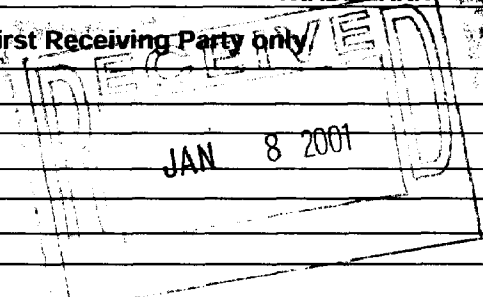 irst Receiving Party only
RECEIVED
JAN 8 2001